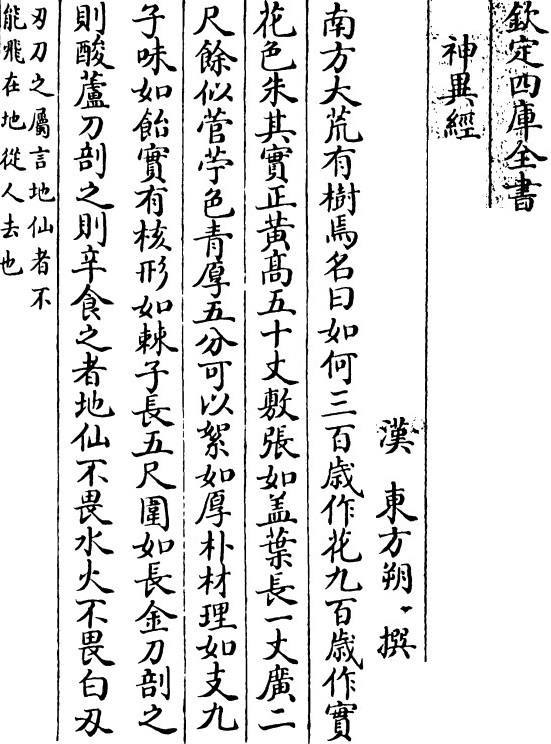 欽定四庫全書
神異經
漢 東方朔 撰
南方大荒有樹焉名曰如何三百歲作花九百歲作實
花色朱其實正黃高五十丈敷張如盖葉長一丈廣二
尺餘似菅苧色青厚五分可以絮如厚朴材理如支九
子味如飴實有核形如棘子長五尺圍如長金刀剖之
則酸蘆刀剖之則辛食之者地仙不畏水火不畏白刃
刃刀之屬言地仙者不
能飛在地從人去也